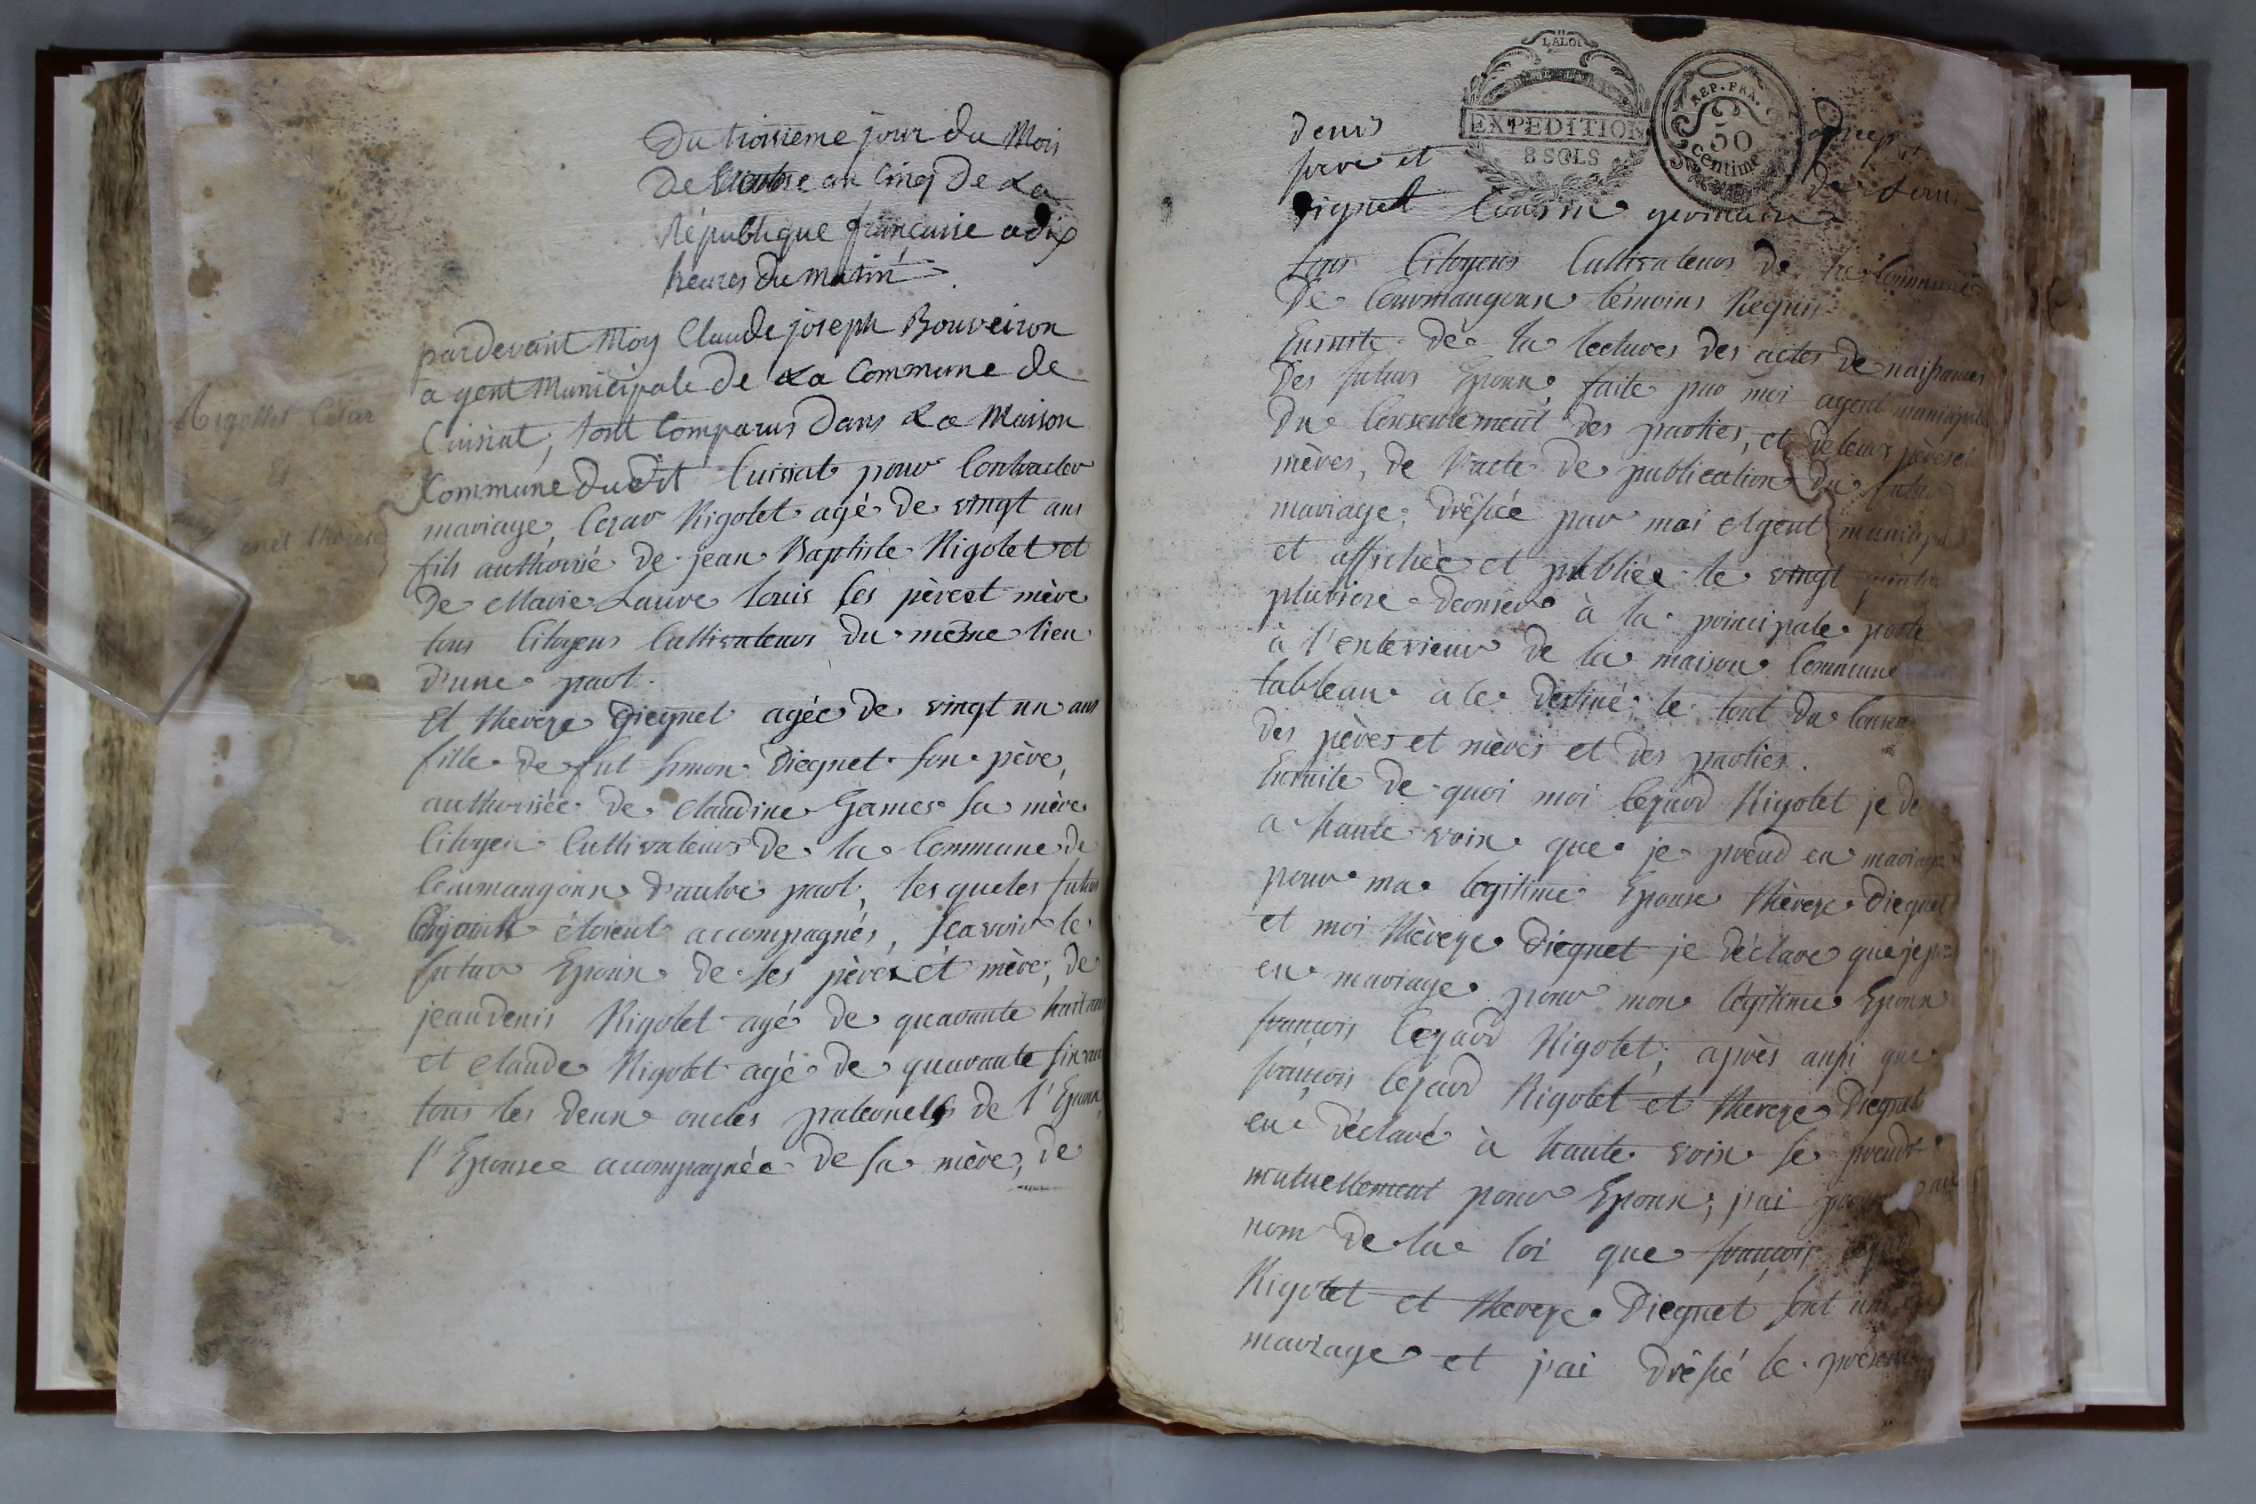 Du troisieme jour du Mois
De Ventose an Cinq De La
République française a dix
heures du matin
pardevant Moy Claude joseph Bouveiron
agent Municipale De La Commune de
Cuisiat, sont Comparus Dans La Maison
Commune Dudit Cuisiat pour Contracter
mariage, Cezar Rigolet agé de vingt ans
fils authorisé de jean Baptiste Rigolet et
De Marie Laure Louis ses pères et mère
tous Citoyens Cultivateurs du même lieu
D'une part.
Et thereze Diegnet agée de vingt un ans
fille de fut Simon Diegnet son père,
authorisée de claudine Games sa mère
Citoyen Cultivateurs De la Commune de
Courmangoux D'autre part, lesqueles futurs
Conjoints étoient accompagnés, scavoir le
futur Epoux de ses pères et mère, de
jeandenis Rigolet agé de quarante huit ans
et claude Rigolet agé de quarante six ans
tous les deux oncles paternels de l'Epoux
l'Epousee accompagnée De sa mère, de
Rigollet Cesar
et
LALOI
EXPEDITION
8 SOLS
REP. FRA.
50
Centime
Denis
frere et
Dignet Cousin germain
tous Citoyens Cultivateurs De la Commune
De Courmangoux témoins Requis
Ensuite De la lectures Des actes De naissances
Des futurs Epoux faite par moi agent municipale
Du Consentement Des parties, et de leurs pères et
mères, de l'acte De publication Du futur
mariage Dréssée par moi Agent municipal
et affichée et publiée le vingt
pluviose Dernier à la principale porte
à l'exterieur De la maison Commune
tableau à ce Destiné le tout Du Consen
Des pères et mères et Des parties.
Ensuite De quoi moi Cezard Rigolet je De
a haute voix que je prend en mariage
pour ma legitime Epouse thèreze Diegnet
et moi thèreze Diegnet je Déclare que je pr
en mariage pour mon légitime Epoux
françois Cezard Rigolet; après aussi que
françois Cezard Rigolet et thereze Diegnet
eu Déclaré à haute voix se prendre
mutuellement pour Epoux; j'ai au
nom De la loi que françois
Rigolet et thereze Diegnet sont unis
mariage et j'ai Dréssé le présent